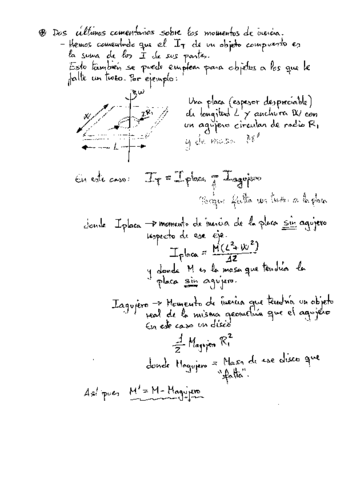 ⊛ Dos últimos comentarios sobre los momentos de inercia.
- Hemos comentado que el I_T de un objeto compuesto es
la suma de los I de sus partes.
Esto también se puede emplear para objetos a los que le
falte un trozo. Por ejemplo:
ω
W
R₁
L
Una placa (espesor despreciable)
de longitud L y anchura W con
un agujero circular de radio R₁
y de masa M'
En este caso: I_T = I placa - I agujero
Porque falta ese trozo a la placa
donde I placa → momento de inercia de la placa sin agujero
respecto de ese eje.
I placa = M(L²+W²)/12
y donde M es la masa que tendría la
placa sin agujero.
I agujero → Momento de inercia que tendría un objeto
real de la misma geometría que el agujero
En este caso un disco
1/2 M agujero R₁²
donde M agujero = Masa de ese disco que
"falta".
Así pues M' = M - M agujero